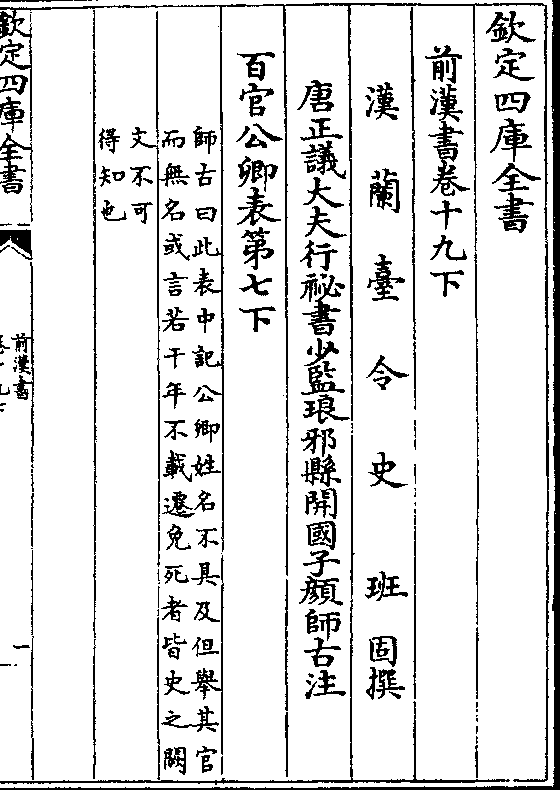 欽定四庫全書
前漢書卷十九下
漢蘭臺令史班固撰
唐正議大夫行祕書少監琅邪縣開國子顔師古注
百官公卿表第七下
師古曰此表中記公卿姓名不具及但舉其官
而無名或言若干年不載遷免死者皆史之闕
文不可
得知也
欽定四庫全書
前漢書
一